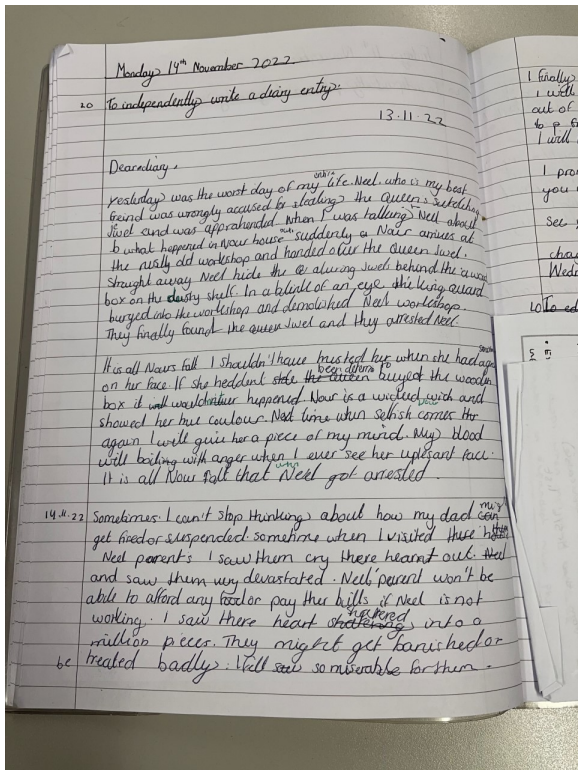 Monday 14th November 2022
20 To independently write a diary entry.
13.11.22
Dear diary,
Yesterday was the worst day of my entire life. Neel who is my best
freind was wrongly accused for stealing the Queen's
Jwel and was apprahended when I was talking Neel about
what happened in Nour house suddenly a Nour arrives at
the really old workshop and handed over the Queen Jwel.
Straght away Neel hide the aluring Jwels behind the
box on the dusty shelf. In a blink of an eye the king guard
burged into the workshop and demolished Neel workshop.
They finally found the queen Jwel and they arrested Neel.
It is all Nours fall I shouldn't have trusted her when she had a
on her face. If she heddent been determ to buyed the wooden
box it wouldn't happened Nour is a wicked wich and
showed her true coulour. Next time when selfish comes
again I will give her a piece of my mind. My blood
will boiling with anger when I ever see her uplesant face.
It is all Nour falt that when Neel got arrested.
14.11.22 Sometimes I can't stop thinking about how my dad might
get fired or suspended. sometime when I visited there
Neel parents I saw them cry there hearnt out.
and saw them very devastated. Neel' parent won't be
able to afford any food or pay ther bills if Neel is not
working. I saw there heart shattered into a
million pieces. They might get banished or
be treated badly. I fell so miserable for them.
I finally
I will
out of
I will
I pro
you
see
Wedn